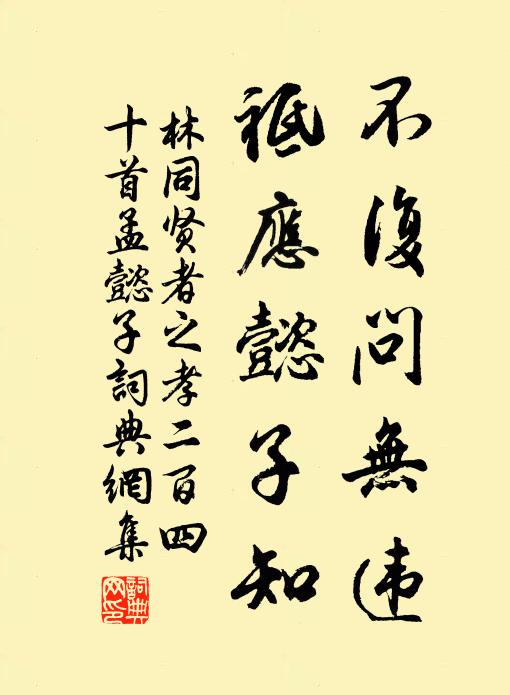 不復问無违
祗應懿子知
林同贤者之孝二百四
十首孟懿子詞典網集
詞典网印